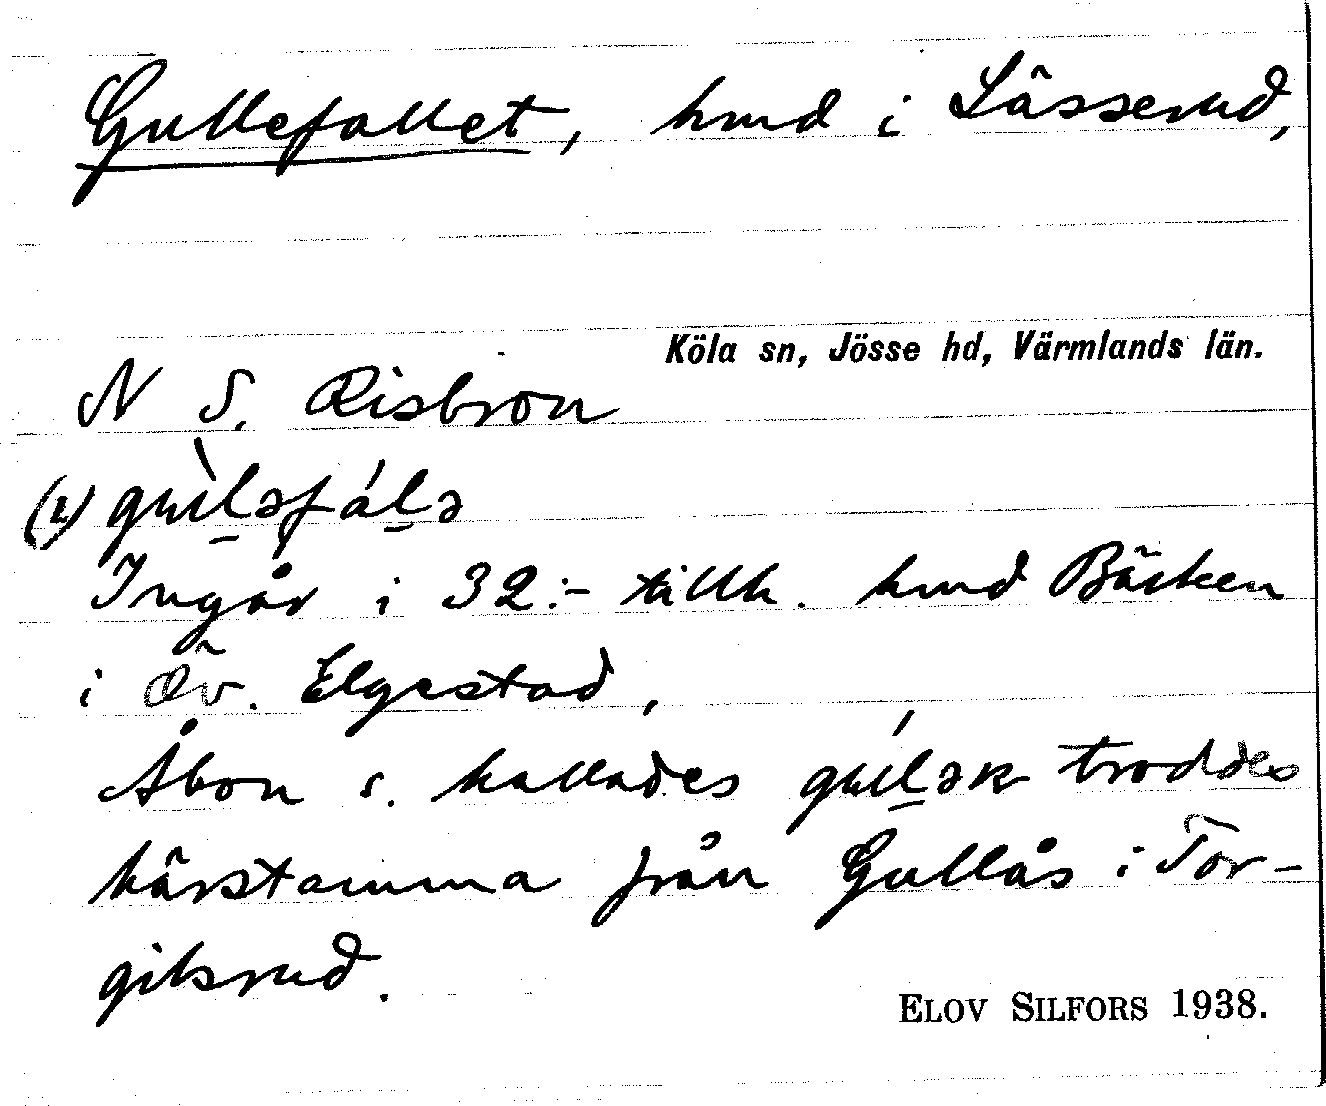 Gullefallet, hmd i Lässerud,
Köla sn, Jösse hd, Värmlands län.
N S. Risbron
gul̲əfál̲ə
Ingår i 32:- tillh. hmd Bäcken
i Öv. Elgestad,
Åbon s. kallades gul̲ək troddes
härstamma från Gullås i Tor-
gilsrud.
ELOV SILFORS 1938.